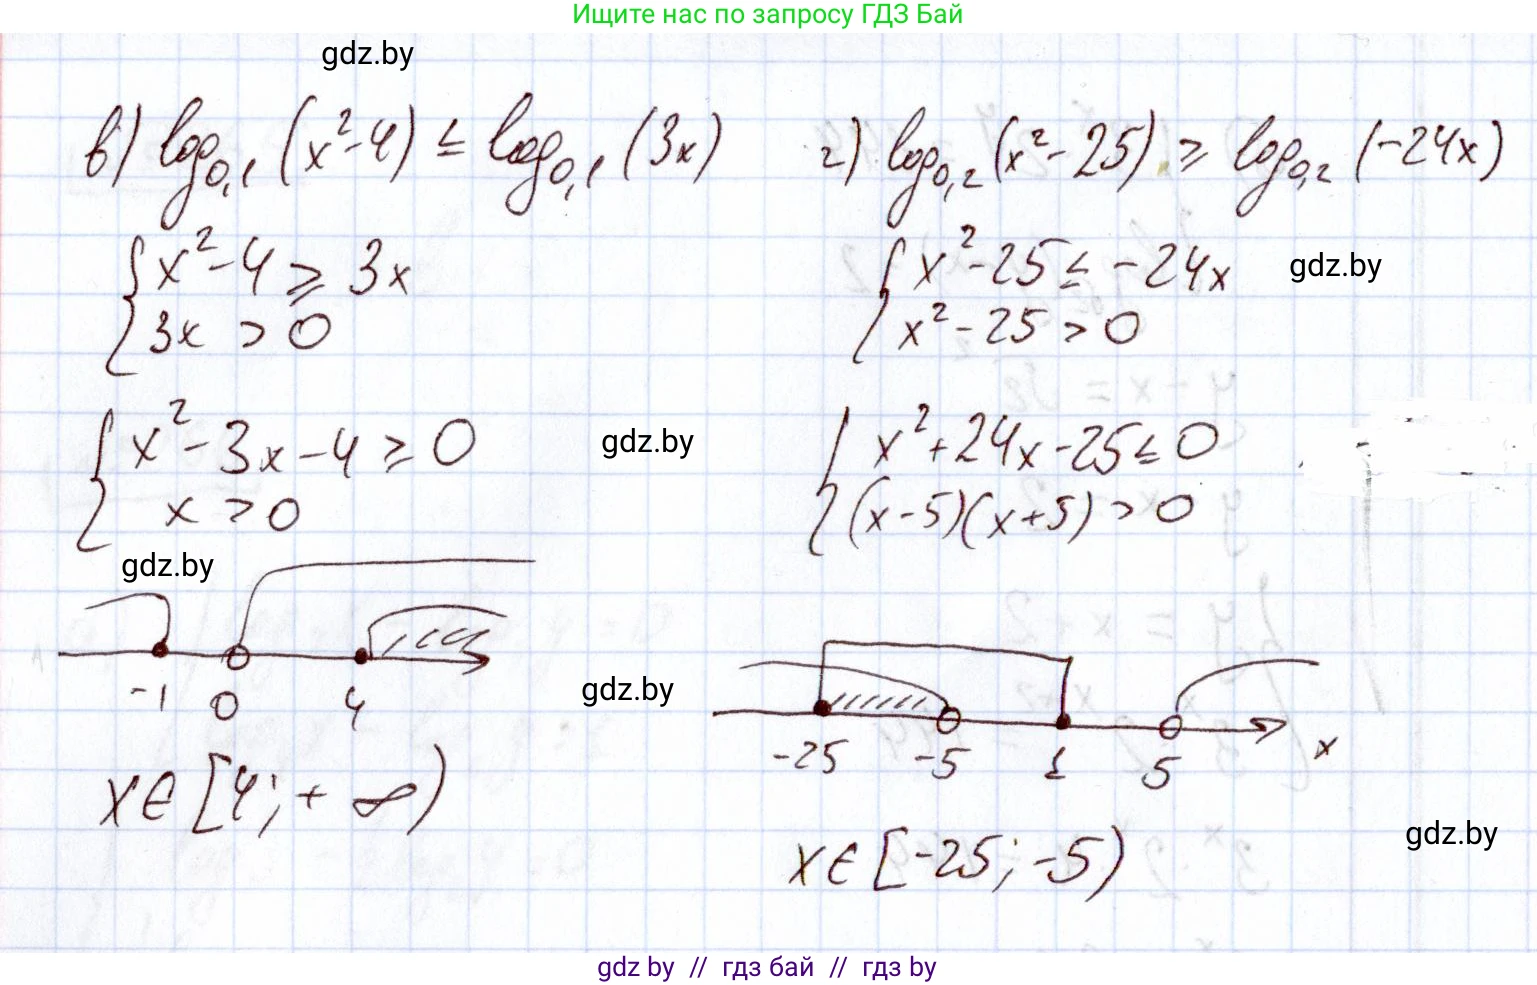 Ищите нас по запросу ГДЗ Бай
gdz.by
в) log₀,₁ (x²-4) ≤ log₀,₁ (3x)
x²-4 ⩾ 3x
3x > 0
x²-3x-4 ⩾ 0
x > 0
gdz.by
gdz.by
-1 0 4
x∈[4;+∞)
г) log₀,₂ (x²-25) ⩾ log₀,₂ (-24x)
x²-25 ≤ -24x
gdz.by
x²-25 > 0
x²+24x-25 ≤ 0
(x-5)(x+5) > 0
gdz.by
-25 -5 1 5 x
x∈[-25;-5)
gdz.by
gdz by // гдз бай // гдз by